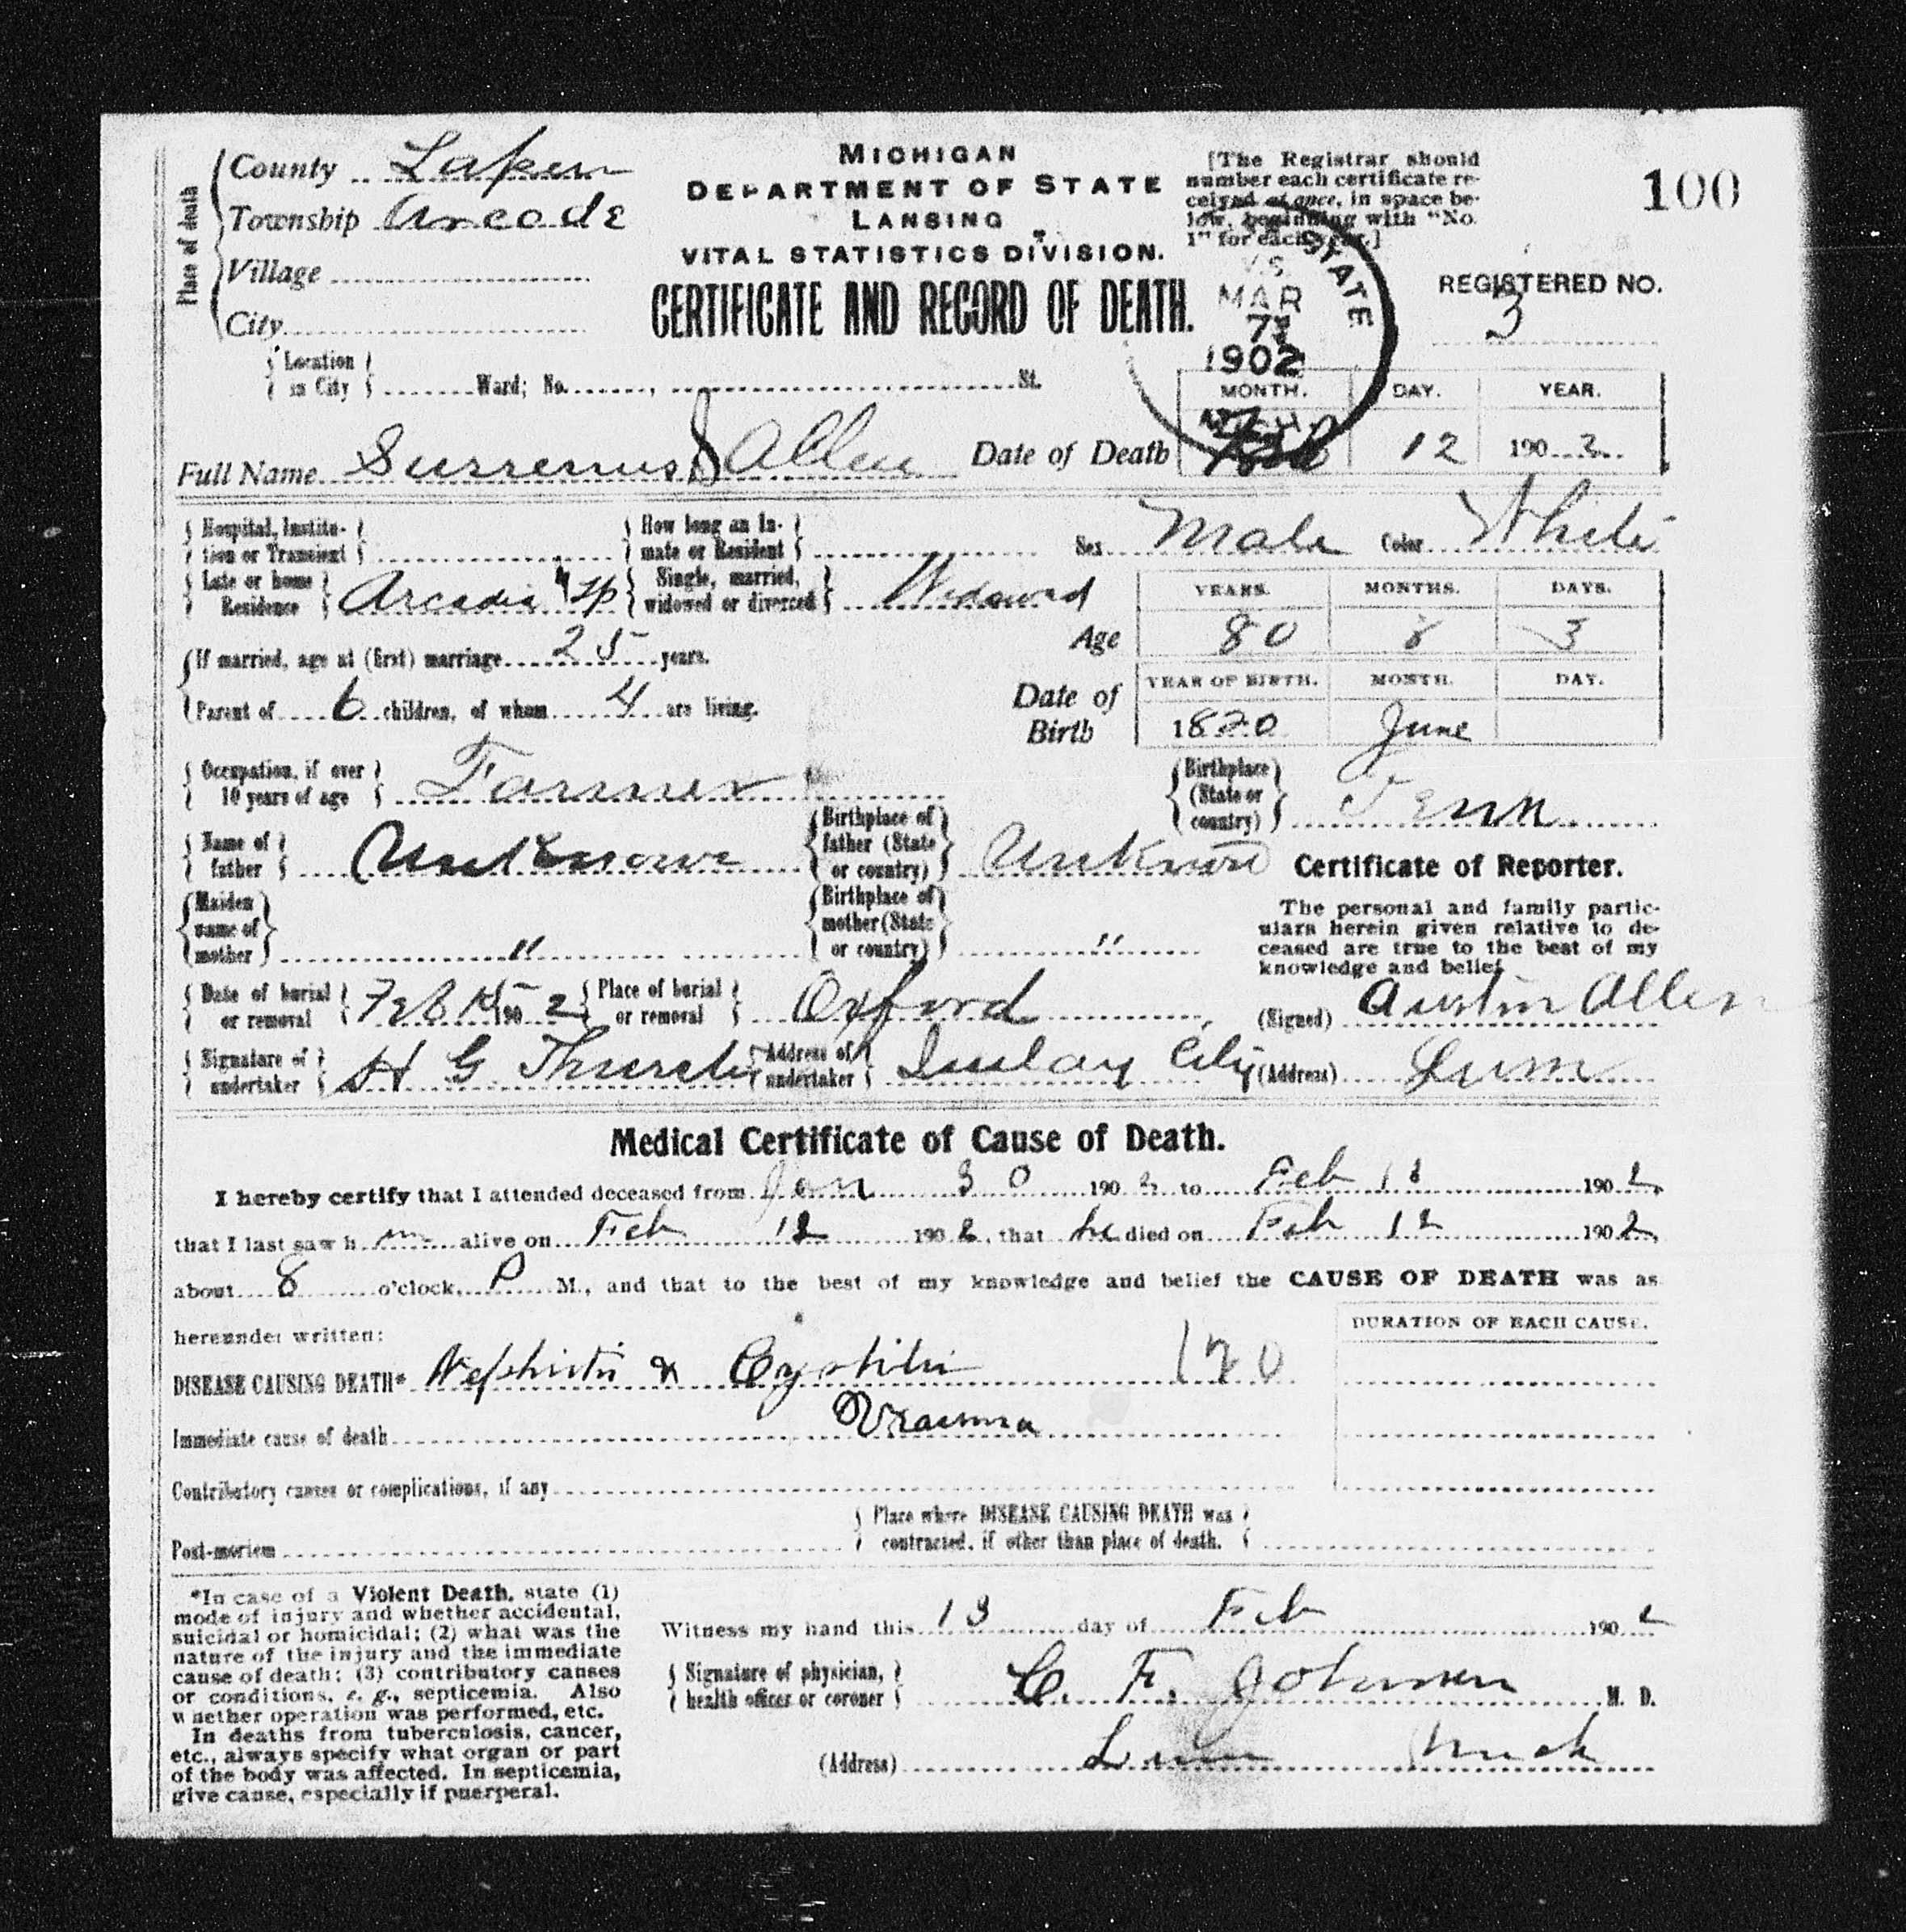 100
Place of death
County Lapeer
Township Arcade
Village
City
MICHIGAN
DEPARTMENT OF STATE
LANSING
VITAL STATISTICS DIVISION.
CERTIFICATE AND RECORD OF DEATH.
[The Registrar should
number each certificate re-
ceived at once, in space be-
low, beginning with "No.
1" for each year.]
STATE
MAR
7
1902
REGISTERED NO.
3
Location in City Ward; No. , St.
Full Name Surrenus Allen
Date of Death
MONTH. DAY. YEAR.
12 1902
Hospital, Institution or Transient
How long an Inmate or Resident
Sex Male Color White
Late or home Residence Arcadia Tp
Single, married, widowed or divorced Widowed
Age
YEARS. MONTHS. DAYS.
80 8 3
If married, age at (first) marriage 25 years.
Parent of 6 children, of whom 4 are living.
Date of Birth
YEAR OF BIRTH. MONTH. DAY.
1820 June
Occupation, if over 10 years of age Farmer
Birthplace (State or country) Tenn
Name of father Unknown
Birthplace of father (State or country) Unknown
Maiden name of mother "
Birthplace of mother (State or country) "
Certificate of Reporter.
The personal and family partic-
ulars herein given relative to de-
ceased are true to the best of my
knowledge and belief.
(Signed) Austin Allen
(Address) Lum
Date of burial or removal Feb 15 1902
Place of burial or removal Oxford
Signature of undertaker H G
Address of undertaker Imlay City
Medical Certificate of Cause of Death.
I hereby certify that I attended deceased from Jan 30 1902 to Feb 1902,
that I last saw him alive on Feb 12 1902, that he died on Feb 12 1902,
about 8 o'clock, P M., and that to the best of my knowledge and belief the CAUSE OF DEATH was as
hereunder written:
DURATION OF EACH CAUSE.
DISEASE CAUSING DEATH* Nephritis & Cystitis 120
Immediate cause of death Uraemia
Contributory causes or complications, if any
Post-mortem
Place where DISEASE CAUSING DEATH was contracted, if other than place of death.
*In case of a Violent Death, state (1)
mode of injury and whether accidental,
suicidal or homicidal; (2) what was the
nature of the injury and the immediate
cause of death; (3) contributory causes
or conditions, e. g., septicemia. Also
whether operation was performed, etc.
In deaths from tuberculosis, cancer,
etc., always specify what organ or part
of the body was affected. In septicemia,
give cause, especially if puerperal.
Witness my hand this 13 day of Feb 1902
Signature of physician, health officer or coroner C. F. Johnson M. D.
(Address) Lum Mich